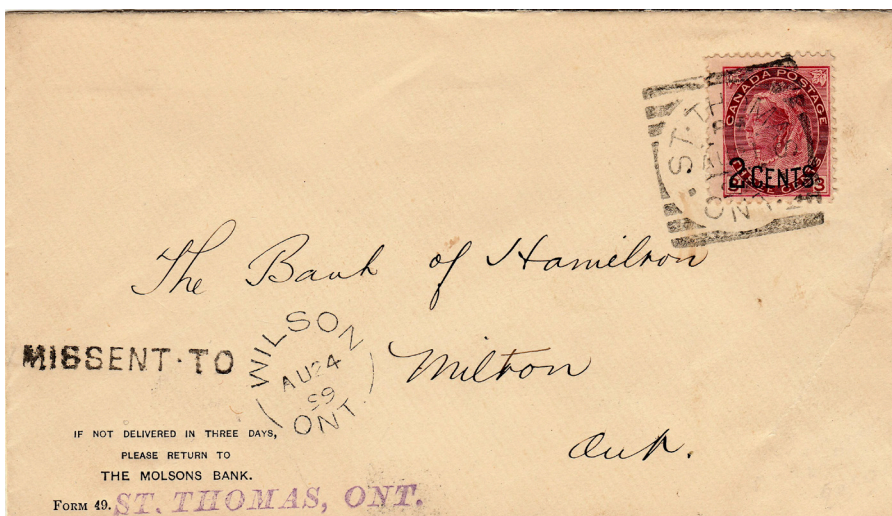 CANADA POSTAGE
2 CENTS
3
ST. TH
AU
ONT.
The Bank of Hamilton
MISSENT·TO
WILSON
AU 24
99
ONT.
Milton
Ont.
IF NOT DELIVERED IN THREE DAYS,
PLEASE RETURN TO
THE MOLSONS BANK.
FORM 49. ST. THOMAS, ONT.